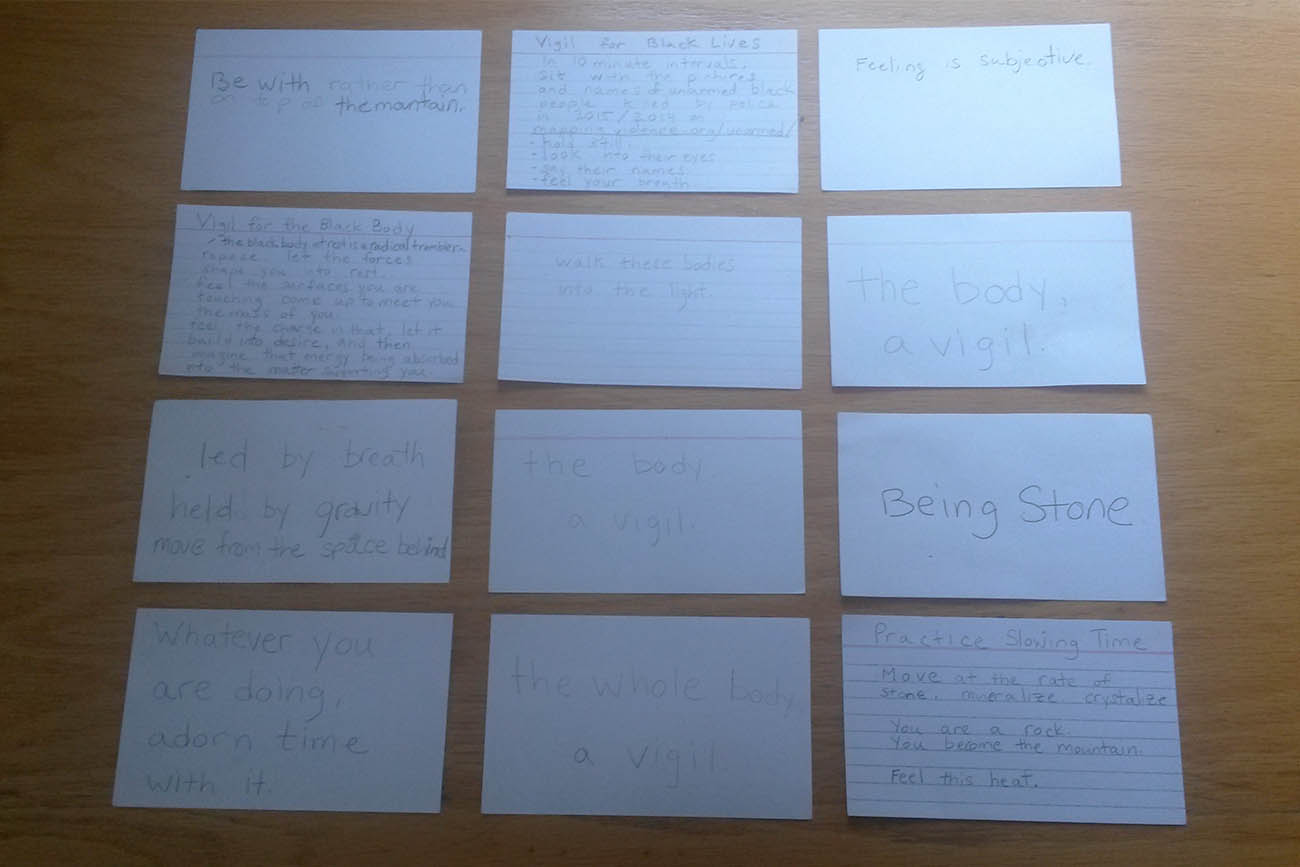 Be with rather than
on top of the mantain.
Vigil for Black Lives
In 10 minute intervals,
sit with the pictures
and names of unarmed black
people killed by police
in 2015/2014 on
mapping violence.org/unarmed/
- hold still.
- look into their eyes
- say their names.
- feel your breath
Feeling is subjective.
Vigil for the Black Body
the black body at rest is a radical
repose. let the forces
shape you into rest.
feel the surfaces you are
touching come up to meet you
the mass of you.
feel the charge in that, let it
build into desire, and then
imagine that energy being absorbed
into the matter supporting you.
walk these bodies
into the light.
the body,
a vigil.
led by breath
held by gravity
move from the space behind
the body.
a vigil.
Being Stone
Whatever you
are doing,
adorn time
with it.
the whole body,
a vigil
Practice Slowing Time
Move at the rate of
stone. mineralize crystalize
You are a rock.
You become the mountain.
Feel this heat.